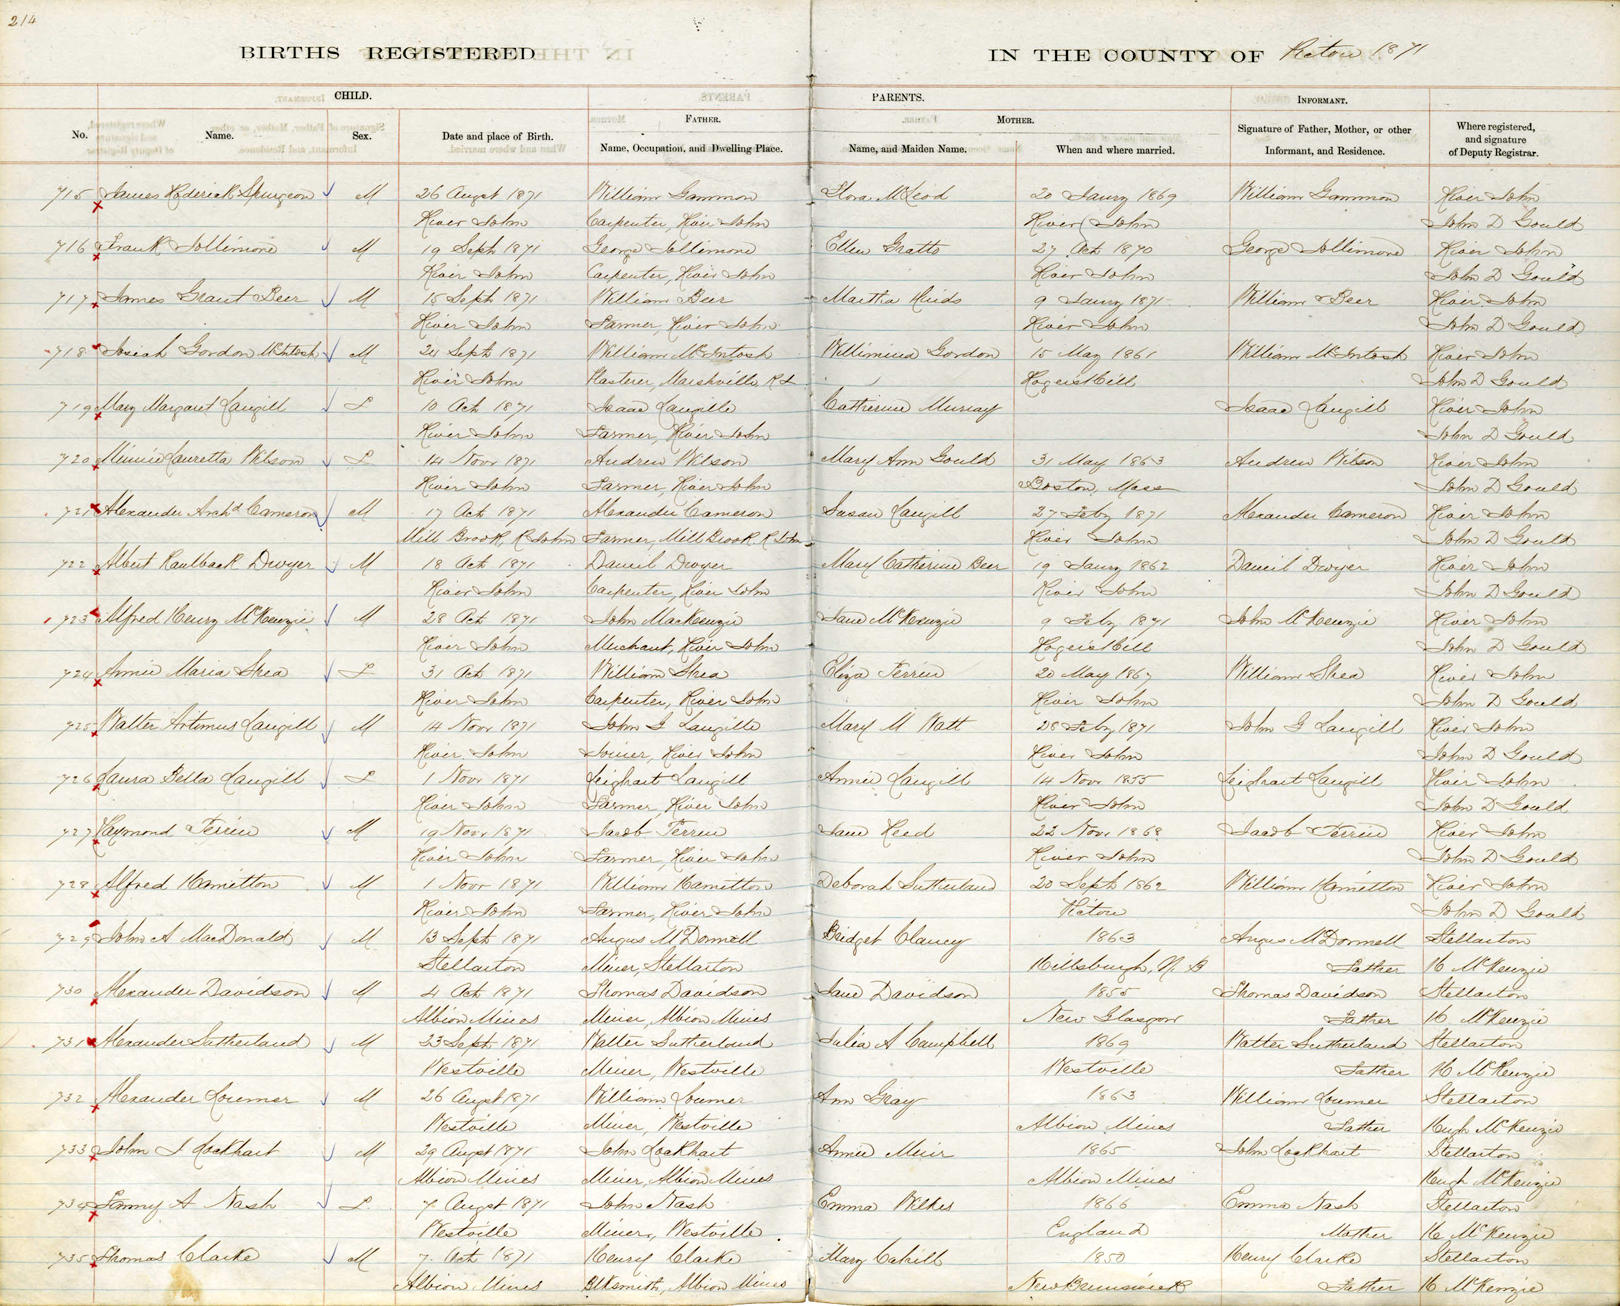 214
BIRTHS REGISTERED IN THE COUNTY OF Pictou 1871
CHILD. PARENTS. INFORMANT.
FATHER. MOTHER.
No. Name. Sex. Date and place of Birth. Name, Occupation, and Dwelling Place. Name, and Maiden Name. When and where married. Signature of Father, Mother, or other Informant, and Residence. Where registered, and signature of Deputy Registrar.
715 James Roderick Spurgeon M 26 Augst 1871 William Gammon Flora McLeod 20 Janry 1869 William Gammon River John
River John Carpenter, River John River John John D Gould
716 Frank Sollimone M 19 Sept 1871 George Sollimone Ellen Gratto 27 Oct 1870 George Sollimone River John
River John Carpenter, River John River John John D Gould
717 James Grant Beer M 15 Sept 1871 William Beer Martha Hinds 9 Janry 1871 William Beer River John
River John Farmer, River John River John John D Gould
718 Josiah Gordon McIntosh M 24 Sept 1871 William McIntosh Willimina Gordon 15 May 1861 William McIntosh River John
River John Plasterer, Marshville R J Rogers Hill John D Gould
719 Mary Margaret Langill F 10 Oct 1871 Isaac Langille Catherine Murray Isaac Langill River John
River John Farmer, River John John D Gould
720 Minnie Lauretta Wilson F 14 Novr 1871 Andrew Wilson Mary Ann Gould 31 May 1863 Andrew Wilson River John
River John Farmer, River John Boston, Mass John D Gould
721 Alexander Archd Cameron M 17 Oct 1871 Alexander Cameron Susan Langill 27 Feby 1871 Alexander Cameron River John
Mill Brook, R. John Farmer, Mill Brook R John River John John D Gould
722 Albert Kaulback Dwyer M 18 Oct 1871 Daniel Dwyer Mary Catherine Beer 19 Janry 1862 Daniel Dwyer River John
River John Carpenter, River John River John John D Gould
723 Alfred Henry McKenzie M 28 Oct 1871 John MacKenzie Jane McKenzie 9 Feby 1871 John McKenzie River John
River John Merchant, River John Rogers Hill John D Gould
724 Annie Maria Shea F 31 Oct 1871 William Shea Eliza Perrin 20 May 1867 William Shea River John
River John Carpenter, River John River John John D Gould
725 Walter Artimus Langill M 14 Novr 1871 John G Langille Mary M Watt 28 Feby 1871 John G Langill River John
River John Joiner, River John River John John D Gould
726 Laura Bella Langill F 1 Novr 1871 Leighart Langill Annie Langill 14 Novr 1855 Leighart Langill River John
River John Farmer, River John River John John D Gould
727 Raymond Perrin M 19 Novr 1871 Jacob Perrin Jane Reed 22 Novr 1868 Jacob Perrin River John
River John Farmer, River John River John John D Gould
728 Alfred Hamilton M 1 Novr 1871 William Hamilton Deborah Sutherland 20 Sept 1862 William Hamilton River John
River John Farmer, River John Pictou John D Gould
729 John A MacDonald M 13 Sept 1871 Angus McDonnell Bridget Clancy 1863 Angus McDonnell Stellarton
Stellarton Miner, Stellarton Hillsburgh, N. B Father H McKenzie
730 Alexander Davidson M 4 Oct 1871 Thomas Davidson Jane Davidson 1855 Thomas Davidson Stellarton
Albion Mines Miner, Albion Mines New Glasgow Father H McKenzie
731 Alexander Sutherland M 23 Sept 1871 Walter Sutherland Julia A Campbell 1869 Walter Sutherland Stellarton
Westville Miner, Westville Westville Father H McKenzie
732 Alexander Lorimer M 26 Augst 1871 William Lorimer Ann Gray 1863 William Lorimer Stellarton
Westville Miner, Westville Albion Mines Father Hugh McKenzie
733 John J Lockhart M 29 Augst 1871 John Lockhart Annie Muir 1865 John Lockhart Stellarton
Albion Mines Miner, Albion Mines Albion Mines Hugh McKenzie
734 Fanny A Nash F 7 Augst 1871 John Nash Emma Wilkes 1866 Emma Nash Stellarton
Westville Miner, Westville England Mother H McKenzie
735 Thomas Clarke M 7 Oct 1871 Henry Clarke Mary Cahill 1850 Henry Clarke Stellarton
Albion Mines Blksmith, Albion Mines New Brunswick Father H McKenzie